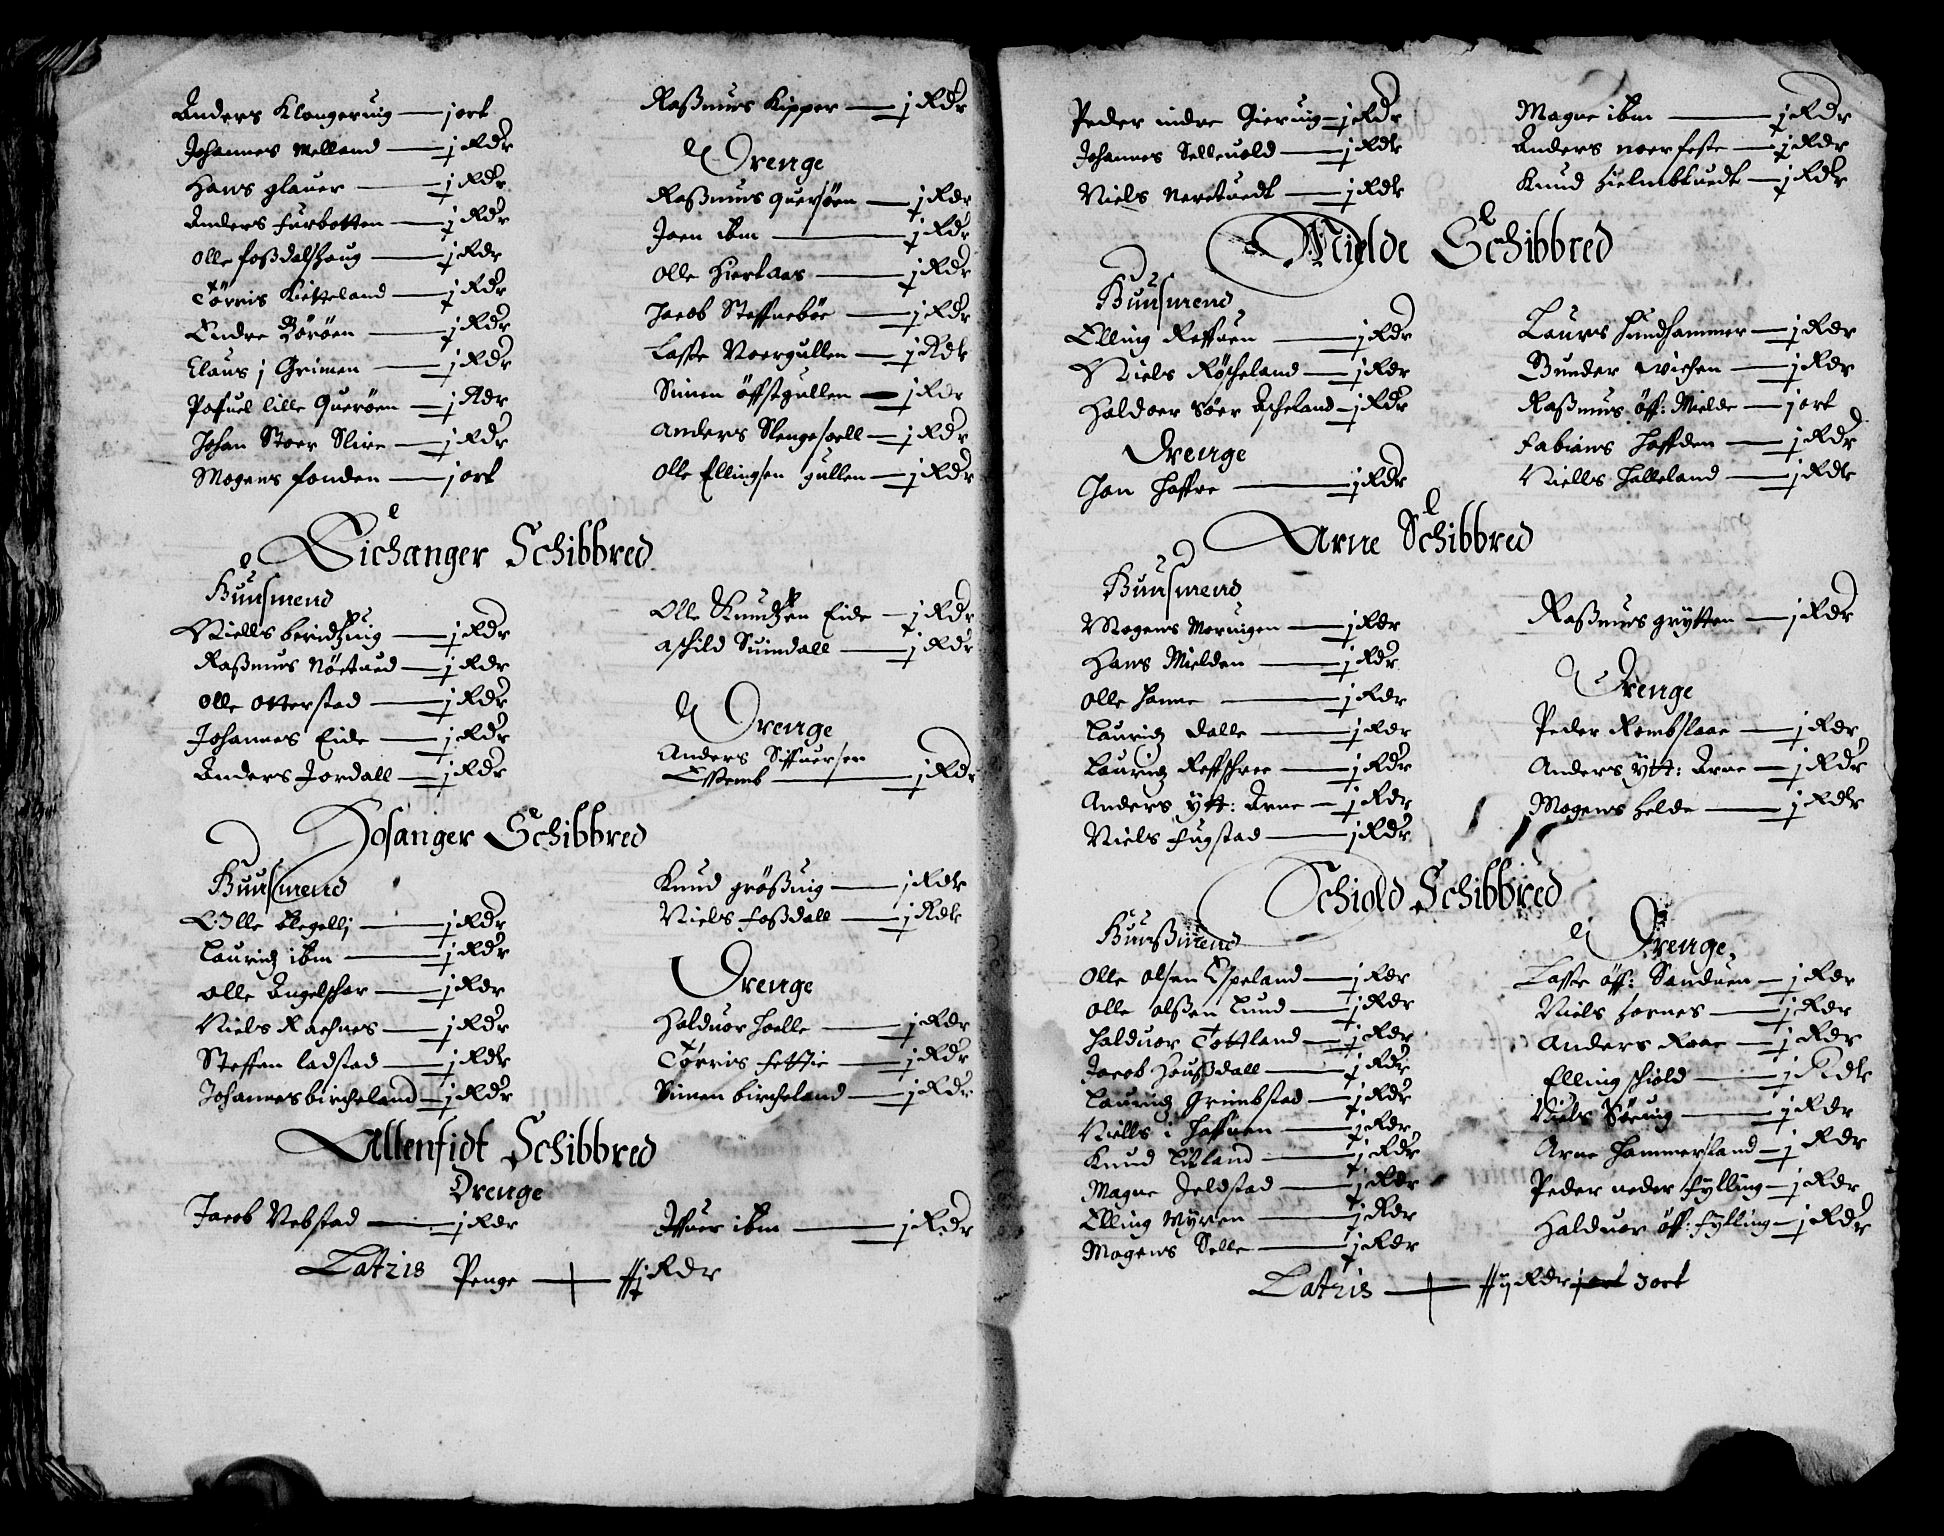 Anders Klongeruig — j ort
Johannes Melland — j Rdr
Hans glauer — j Rdr
Anders furbotten — j Rdr
Olle foßdalshaug — j Rdr
Törris Kitteland — j Rdr
Endre Böröen — j Rdr
Claus j Grimen — j Rdr
Pofuel lille Queröen — j Rdr
Johan Stoer Slire — j Rdr
Mogens fonden — j ort
Raßmus Kipper — j Rdr
Drenge
Raßmus Quersöen — j Rdr
Joen ibm — j Rdr
Olle Hiertaas — j Rdr
Jacob Steffneböe — j Rdr
Lasse Noergullen — j Rdr
Simen öffstgullen — j Rdr
Anders Slengesoell — j Rdr
Olle Ellingsen gullen — j Rdr
Eichanger Schibbred
Buusmend
Niells beridtzuig — j Rdr
Raßmus Nöetued — j Rdr
Olle Otterstad — j Rdr
Johannes Eide — j Rdr
Anders Jordall — j Rdr
Olle Knudtzen Eide — j Rdr
Aschild Suindall — j Rdr
Drenge
Anders Siffuersen
Essemb — j Rdr
Hosanger Schibbred
Buusmend
Olle Tlegellj — j Rdr
Lauridz ibm — j Rdr
Olle Angelschar — j Rdr
Niels Rachnes — j Rdr
Steffen ladstad — j Rdr
Johannes bircheland — j Rdr
Knud größuig — j Rdr
Niels foßdall — j Rdr
Drenge
Halduor hoelle — j Rdr
Törris fettie — j Rdr
Simen bircheland — j Rdr
Allenfidt Schibbred
Drenge
Jacob Vebstad — j Rdr
Iffuer ibm — j Rdr
Latris Penge — Rdr
Peder indre Gieruig — j Rdr
JohannesSelleuold — j Rdr
Niels Neretuedt — j Rdr
Magne ibm — j Rdr
Anders noerfeste — j Rdr
Knud Hielmbtuedt — j Rdr
Mielde Schibbred
Buusmend
Elling Reffuen — j Rdr
Niels Röscheland — j Rdr
Haldoer Söer Ascheland — j Rdr
Drenge
Jon hoffre — j Rdr
Laurs hundhammer — j Rdr
Gunder Wichen — j Rdr
Raßmus öff: Mielde — j ort
Fabians hoffden — j Rdr
Niells halleland — j Rdr
Arne Schibbred
Buusmend
Mogens Moruigen — j Rdr
Hans Mielden — j Rdr
Olle hanne — j Rdr
Lauridz Dalle — j Rdr
Lauridz Reffschree — j Rdr
Anders ytt: Arne — j Rdr
Niels fugstad — j Rdr
Raßmus grytten — j Rdr
Drenge
Peder Rombslaae — j Rdr
Anders ytt: Arne — j Rdr
Mogens helde — j Rdr
Schiold Schibbred
Buußmend
Olle olsen Espeland — j Rdr
Olle olßen Lund — j Rdr
halduor Tottland — j Rdr
Jacob Houßdall — j Rdr
Lauridz Grimbstad — j Rdr
Niells i hoffuen — j Rdr
Knud Lilland — j Rdr
Magne Jeldstad — j Rdr
Elling Myren — j Rdr
Mogens Selle — j Rdr
Drenge
Lasse öff: Sanduen — j Rdr
Niels hornes — j Rdr
Anders Roae — j Rdr
Elling schiold — j Rdr
Niels Söruig — j Rdr
Arne hammersland — j Rdr
Peder neder fylling — j Rdr
Halduor öff: fylling — j Rdr
Latris — Rdr j ort 3 ort